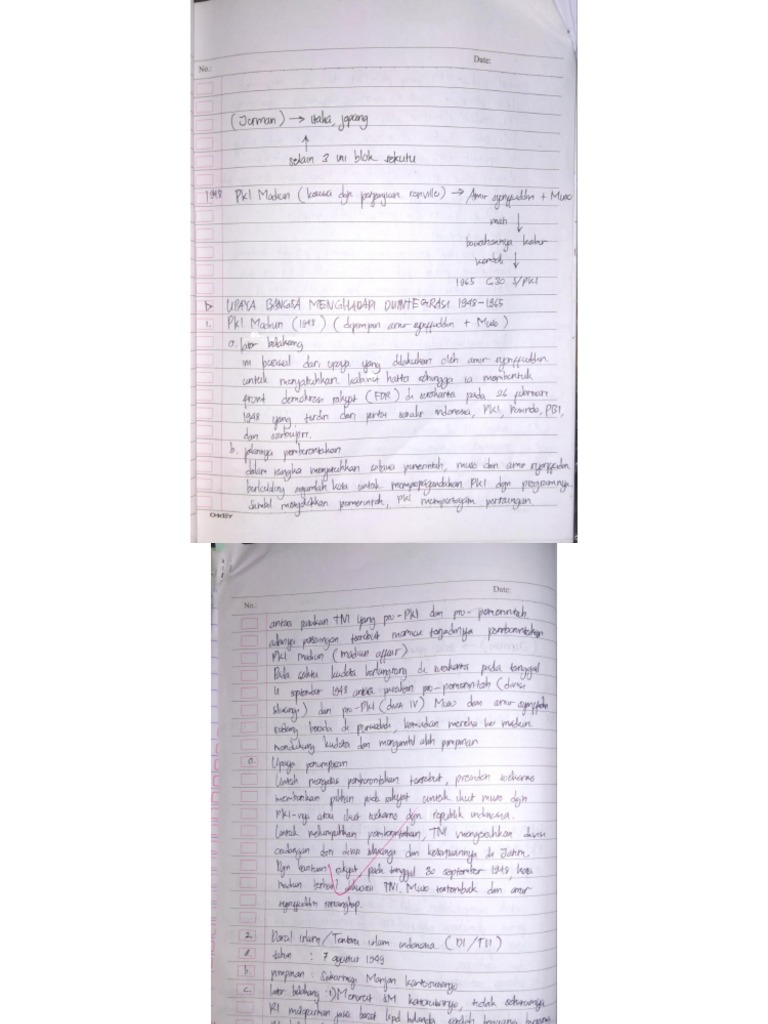 No.:
Date:
(Jerman) → Italia, jepang
↑
selain 3 ini blok sekutu
1948 PKI Madiun (kecewa dgn perjanjian renville) → Amir syarifuddin + Muso
mati ↓
bawahannya kabur
kembali ↓
1965 G30 S/PKI
b. UPAYA BANGSA MENGHADAPI DISINTEGRASI 1948-1965
1. PKI Madiun (1948) (dipimpin amir syarifuddin + Muso)
a. latar belakang
ini berasal dari upaya yang dilakukan oleh amir syarifuddin
untuk menjatuhkan kabinet hatta sehingga ia membentuk
front demokrasi rakyat (FDR) di surakarta pada 26 februari
1948 yang terdiri dari partai sosialis indonesia, PKI, Pesindo, PBI,
dan sarbupri.
b. jalannya pemberontakan
dalam rangka menjatuhkan wibawa pemerintah, muso dan amir syarifuddin
berkeliling sejumlah kota untuk mempropagandakan PKI dgn programnya.
Sambil menjelekkan pemerintah, PKI mempertajam pertentangan
OKEY
No.:
Date:
antara pasukan TNI yang pro-PKI dan pro-pemerintah
adanya pertentangan tersebut memicu terjadinya pemberontakan
PKI madiun (madiun affair)
Pada waktu kudeta berlangsung di surakarta pada tanggal
11 september 1948 antara pasukan pro-pemerintah (divisi
siliwangi) dan pro-PKI (divisi IV) Muso dan amir syarifuddin
sedang berada di purwodadi, kemudian mereka ke madiun
mendukung kudeta dan mengambil alih pimpinan
c. Upaya penumpasan
Untuk mengatasi pemberontakan tersebut, presiden soekarno
memberikan pilihan pada rakyat untuk ikut muso dgn
PKI-nya atau ikut soekarno dgn republik indonesia.
Untuk melumpuhkan pemberontakan, TNI mengerahkan divisi
cadangan dan divisi siliwangi dan kesatuannya di Jatim.
Dgn bantuan rakyat pada tanggal 30 september 1948, kota
madiun berhasil dikuasai TNI. Muso tertembak dan amir
syarifuddin tertangkap.
2. Darul islam/Tentara islam indonesia (DI/TII)
a. tahun : 7 agustus 1949
b. pimpinan : Sekarmaji Marijan kartosuwiryo
c. latar belakang : 1) Menurut SM kartosuwiryo, tidak seharusnya
RI melepaskan jawa barat kpd belanda